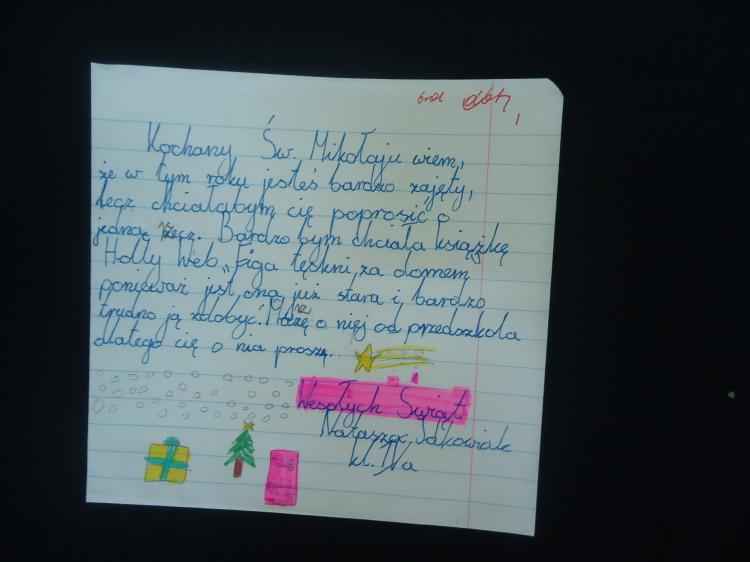 brak daty
Kochany Św. Mikołaju wiem,
że w tym roku jesteś bardzo zajęty,
lecz chciałabym cię poprosić o
jedną rzecz. Bardzo bym chciała książkę
Holly Web „Figa tęskni za domem
ponieważ jest ona już stara i bardzo
trudno ją zdobyć. Marzę o niej od przedszkola
dlatego cię o nia proszę.
Wesołych Świąt
Natasza
kl. IVa